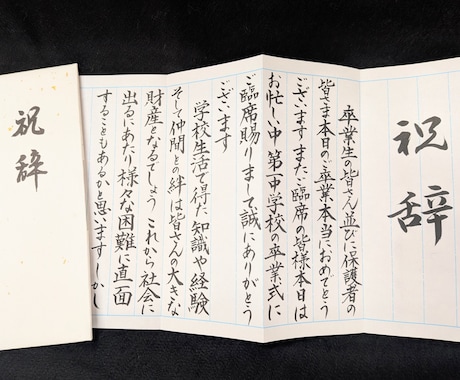 祝辞
卒業生の皆さん並びに保護者の
皆さま本日のご卒業本当におめでとう
ございます また ご臨席の皆様本日は
お忙しい中 第一中学校の卒業式に
ご臨席賜りまして誠にありがとう
ございます
学校生活で得た知識や経験
そして仲間との絆は皆さんの大きな
財産となるでしょう これから社会に
出るにあたり様々な困難に直面
することもあるかと思います しかし
祝辞